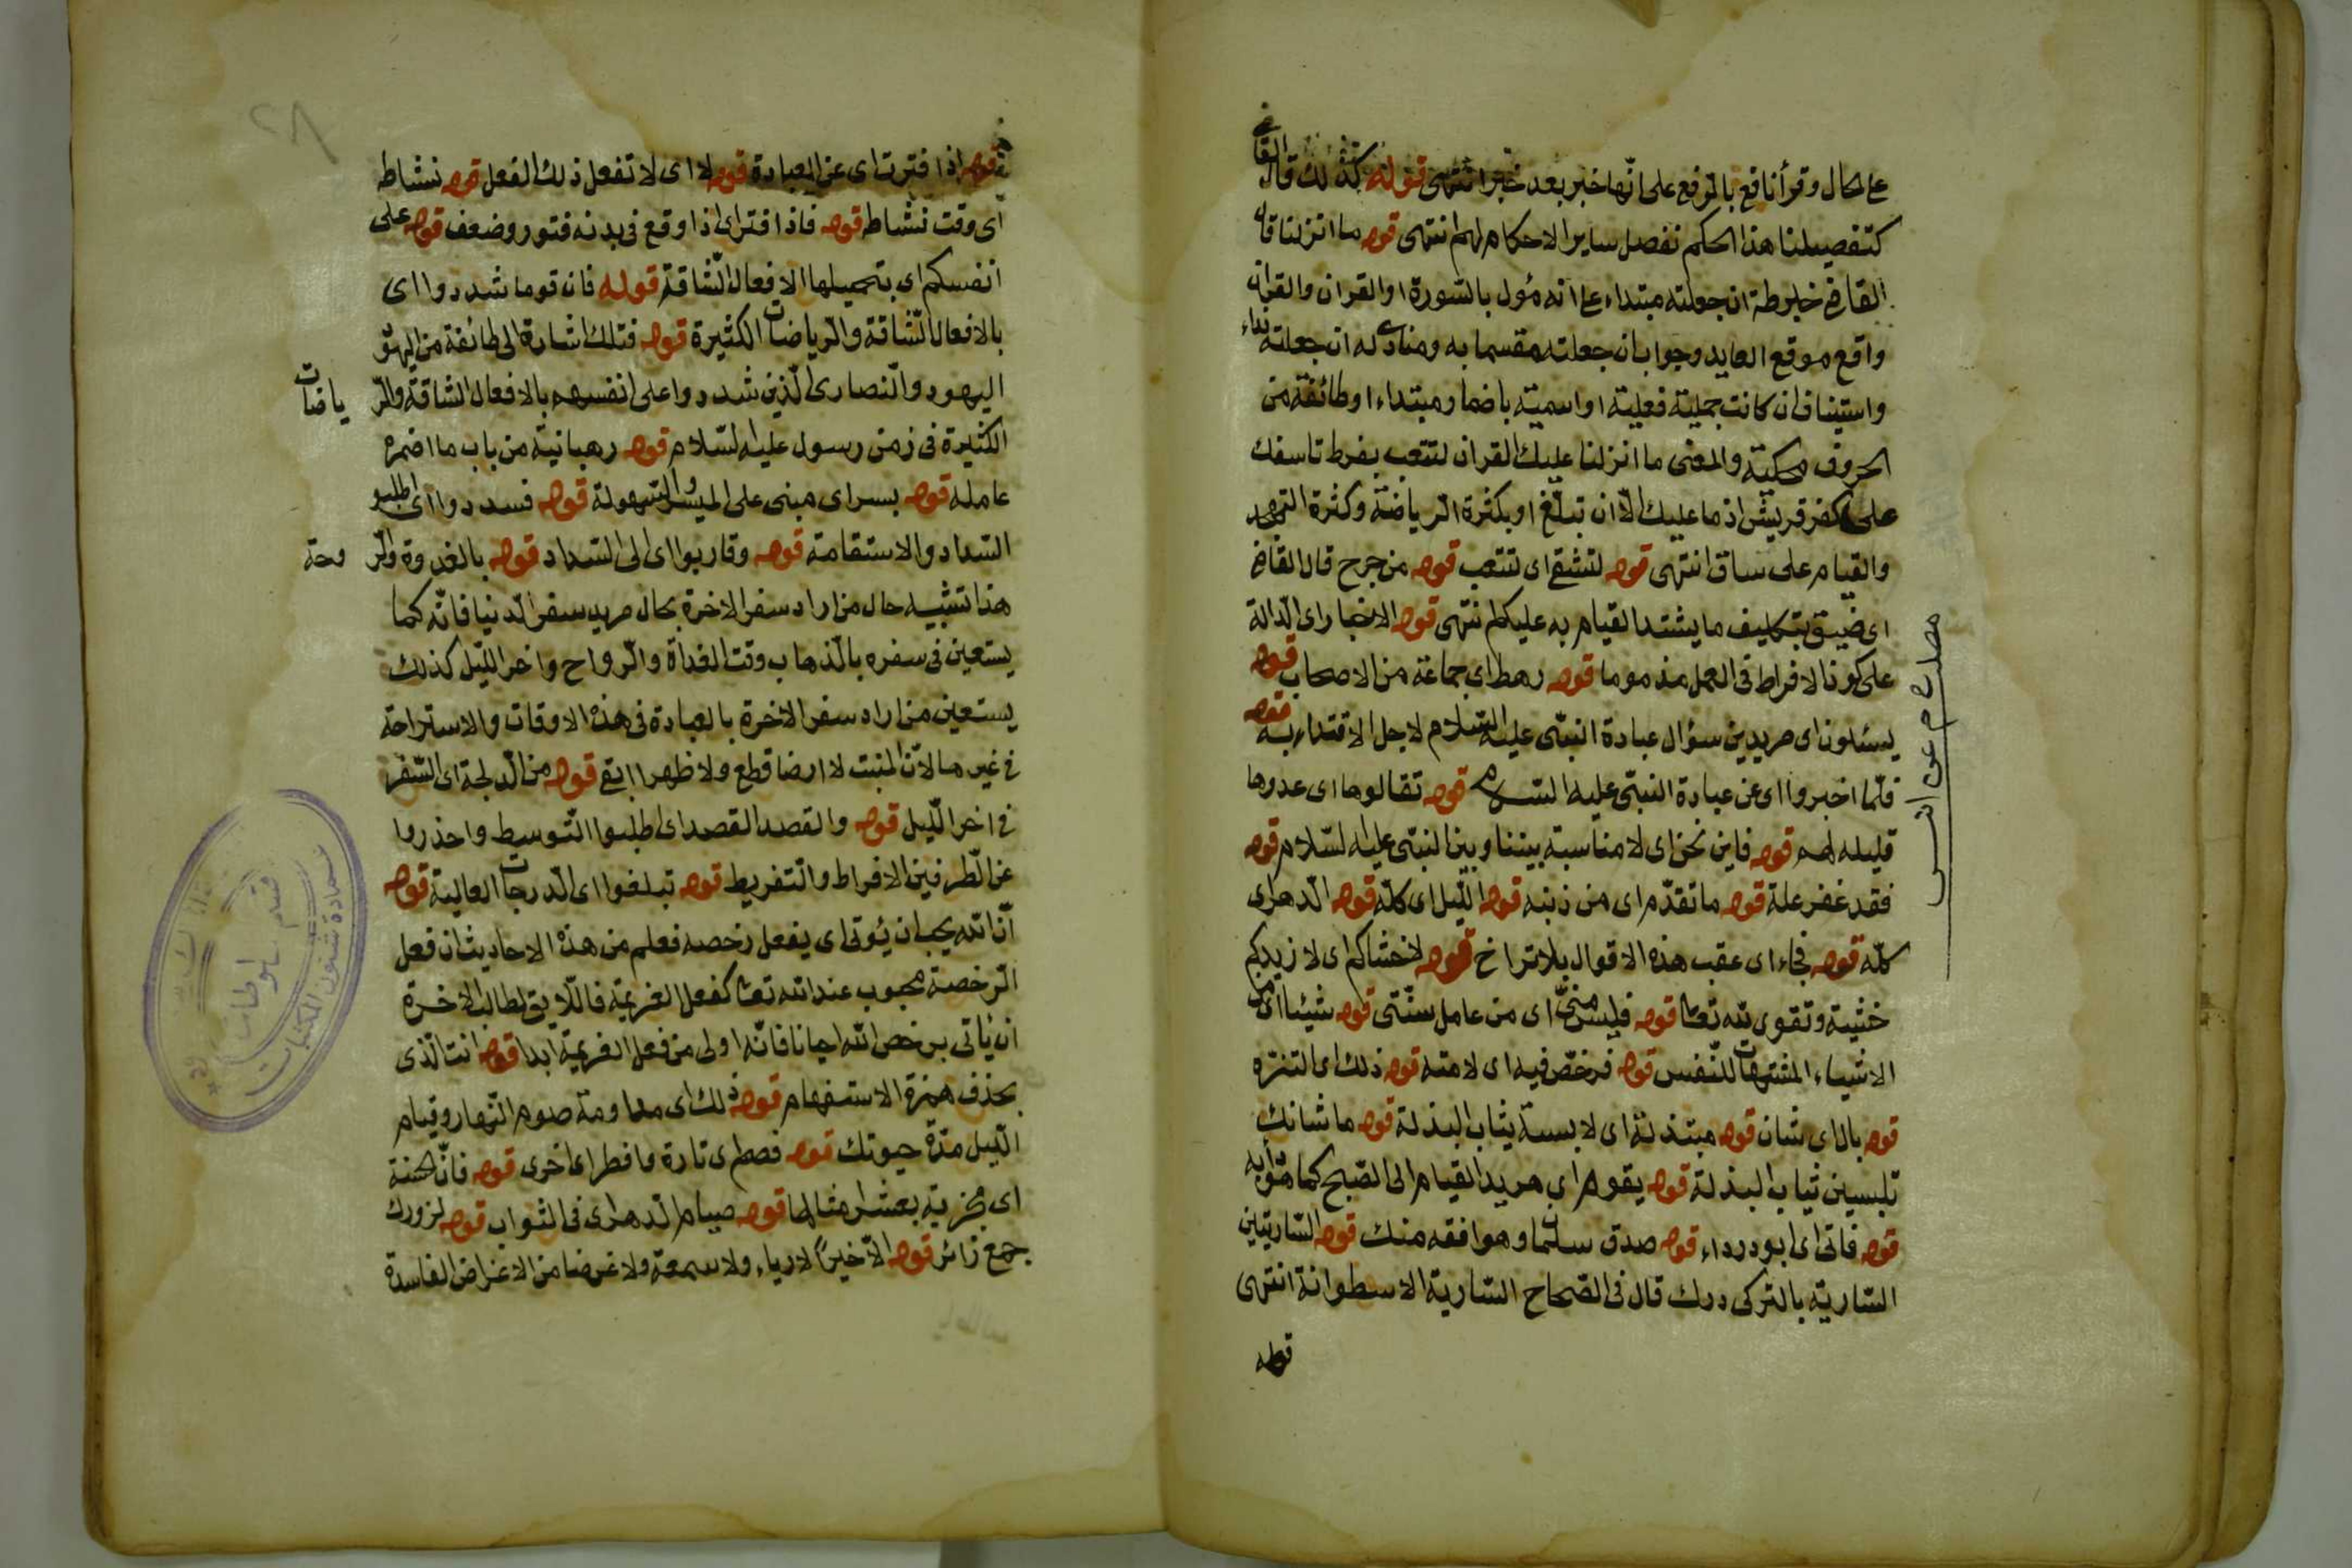 على الحال وقرأ نافع بالرفع على انّها خبر بعد خبر انتهى قوله كذلك قال القاضى
كتفصيلنا هذا الحكم نفصل ساير الاحكام لهم انتهى قوله ما انزلنا قال
القاضى خبر طه ان جعلته مبتداء على انه مؤل بالسّورة او القران والقران
واقع موقع العايد وجوابا ان جعلته مقسما به ومنادى له ان جعلته نداء
واستيناف ان كانت جملة فعلية او اسمية باضمار مبتداء او طائفة من
الحروف محكيّة والمعنى ما انزلنا عليك القران لتتعب بفرط تاسفك
على كفر قريش اذ ما عليك الّا ان تبلّغ او بكثرة الرياضة وكثرة التهجد
والقيام على ساق انتهى قوله لتشقى اى لتتعب قوله من حرج قال القاضى
اى ضيق بتكليف ما يشتد القيام به عليكم انتهى قوله الاخبار اى الدّالة
على كون الافراط فى العمل مذموما قوله رهط اى جماعة من الاصحاب قوله
يسئلون اى مريدين سؤال عبادة النبىّ عليه السّلام لاجل الاقتداء به قوله
فلمّا اخبروا اى عن عبادة النبىّ عليه السّلام قوله تقالوها اى عدوها
قليله لهم قوله فاين نحن اى لا مناسبة بيننا وبين النبىّ عليه السّلام قوله
فقد غفر علة قوله ما تقدّم اى من ذنبه قوله اللّيل اى كلّه قوله الدّهر اى
كلّه قوله فجاء اى عقب هذه الاقوال بلا تراخ قوله لاخشاكم اى لا زيدكم
خشية وتقوى لله تعا قوله فليس منّى اى من عامل سنّتى قوله شيئا اى من
الاشياء المشتهات للنّفس قوله فرخّص فيه اى لامته قوله ذلك اى التنزه
قوله بال اى شان قوله مبتذلة اى لابسة ثياب البذلة قوله ما شانك
تلبسين ثياب البذلة قوله يقوم اى مريد القيام الى الصّبح كما هو دأبه
قوله فاتى اى ابو درداء قوله صدق سلمان وهو افقه منك قوله السّاريتين
السّارية بالتركى درك قال فى الصّحاح السّارية الاسطوانة انتهى
قوله
مصابيح م عن انس
قوله اذا فترت اى عن العبادة قوله لا اى لا تفعل ذلك الفعل قوله نشاط
اى وقت نشاط قوله فاذا فتر اى اذا وقع فى بدنه فتور وضعف قوله على
انفسكم اى بتحميلها الافعال الشّاقة قوله فان قوما شددوا اى
بالافعال الشّاقة والرّياضات الكثيرة قوله فتلك اشارة الى طائفة من اليهود
اليهود والنّصارى الّذين شددوا على انفسهم بالافعال الشاقة والرّياضات
الكثيرة فى زمن رسول عليه السّلام قوله رهبانية من باب ما اضمر
عامله قوله يسر اى مبنى على اليسر والسّهولة قوله فسددوا اى اطلبوا
السّداد والاستقامة قوله وقاربوا اى الى السّداد قوله بالغدوة والرّوحة
هذا تشبيه حال من اراد سفر الاخرة بحال مريد سفر الدّنيا فانّه كما
يستعين فى سفره بالذّهاب وقت الغداة والرّواح واخر اللّيل كذلك
يستعين من اراد سفر الاخرة بالعبادة فى هذه الاوقات والاستراحة
فى غيرها لانّ المنبت لا ارضا قطع ولا ظهرا ابقى قوله من الدّلجة اى السّفر
فى اخر اللّيل قوله والقصد القصد اى اطلبوا التّوسط واحذروا
عن الطّرفين الافراط والتّفريط قوله تبلغوا اى الدّرجات العالية قوله
انّ الله يحب ان يؤتى اى يفعل رخصه فعلم من هذه الاحاديث ان فعل
الرّخصة محبوب عند الله تعا كفعل العزيمة فاللّايق لطالب الاخرة
ان يأتى برخص الله احيانا فانّه اولى من فعل العزيمة ابدا قوله انت الّذى
بحذف همزة الاستفهام قوله ذلك اى مداومة صوم النّهار وقيام
اللّيل مدّة حيوتك قوله فصم اى تارة وافطر اى اخرى قوله فانّ الحسنة
اى مجزية بعشر امثالها قوله صيام الدّهر اى فى الثواب قوله لزورك
جمع زائر قوله الّا خيرا لا رياء ولا سمعة ولا غرضا من الاغراض الفاسدة